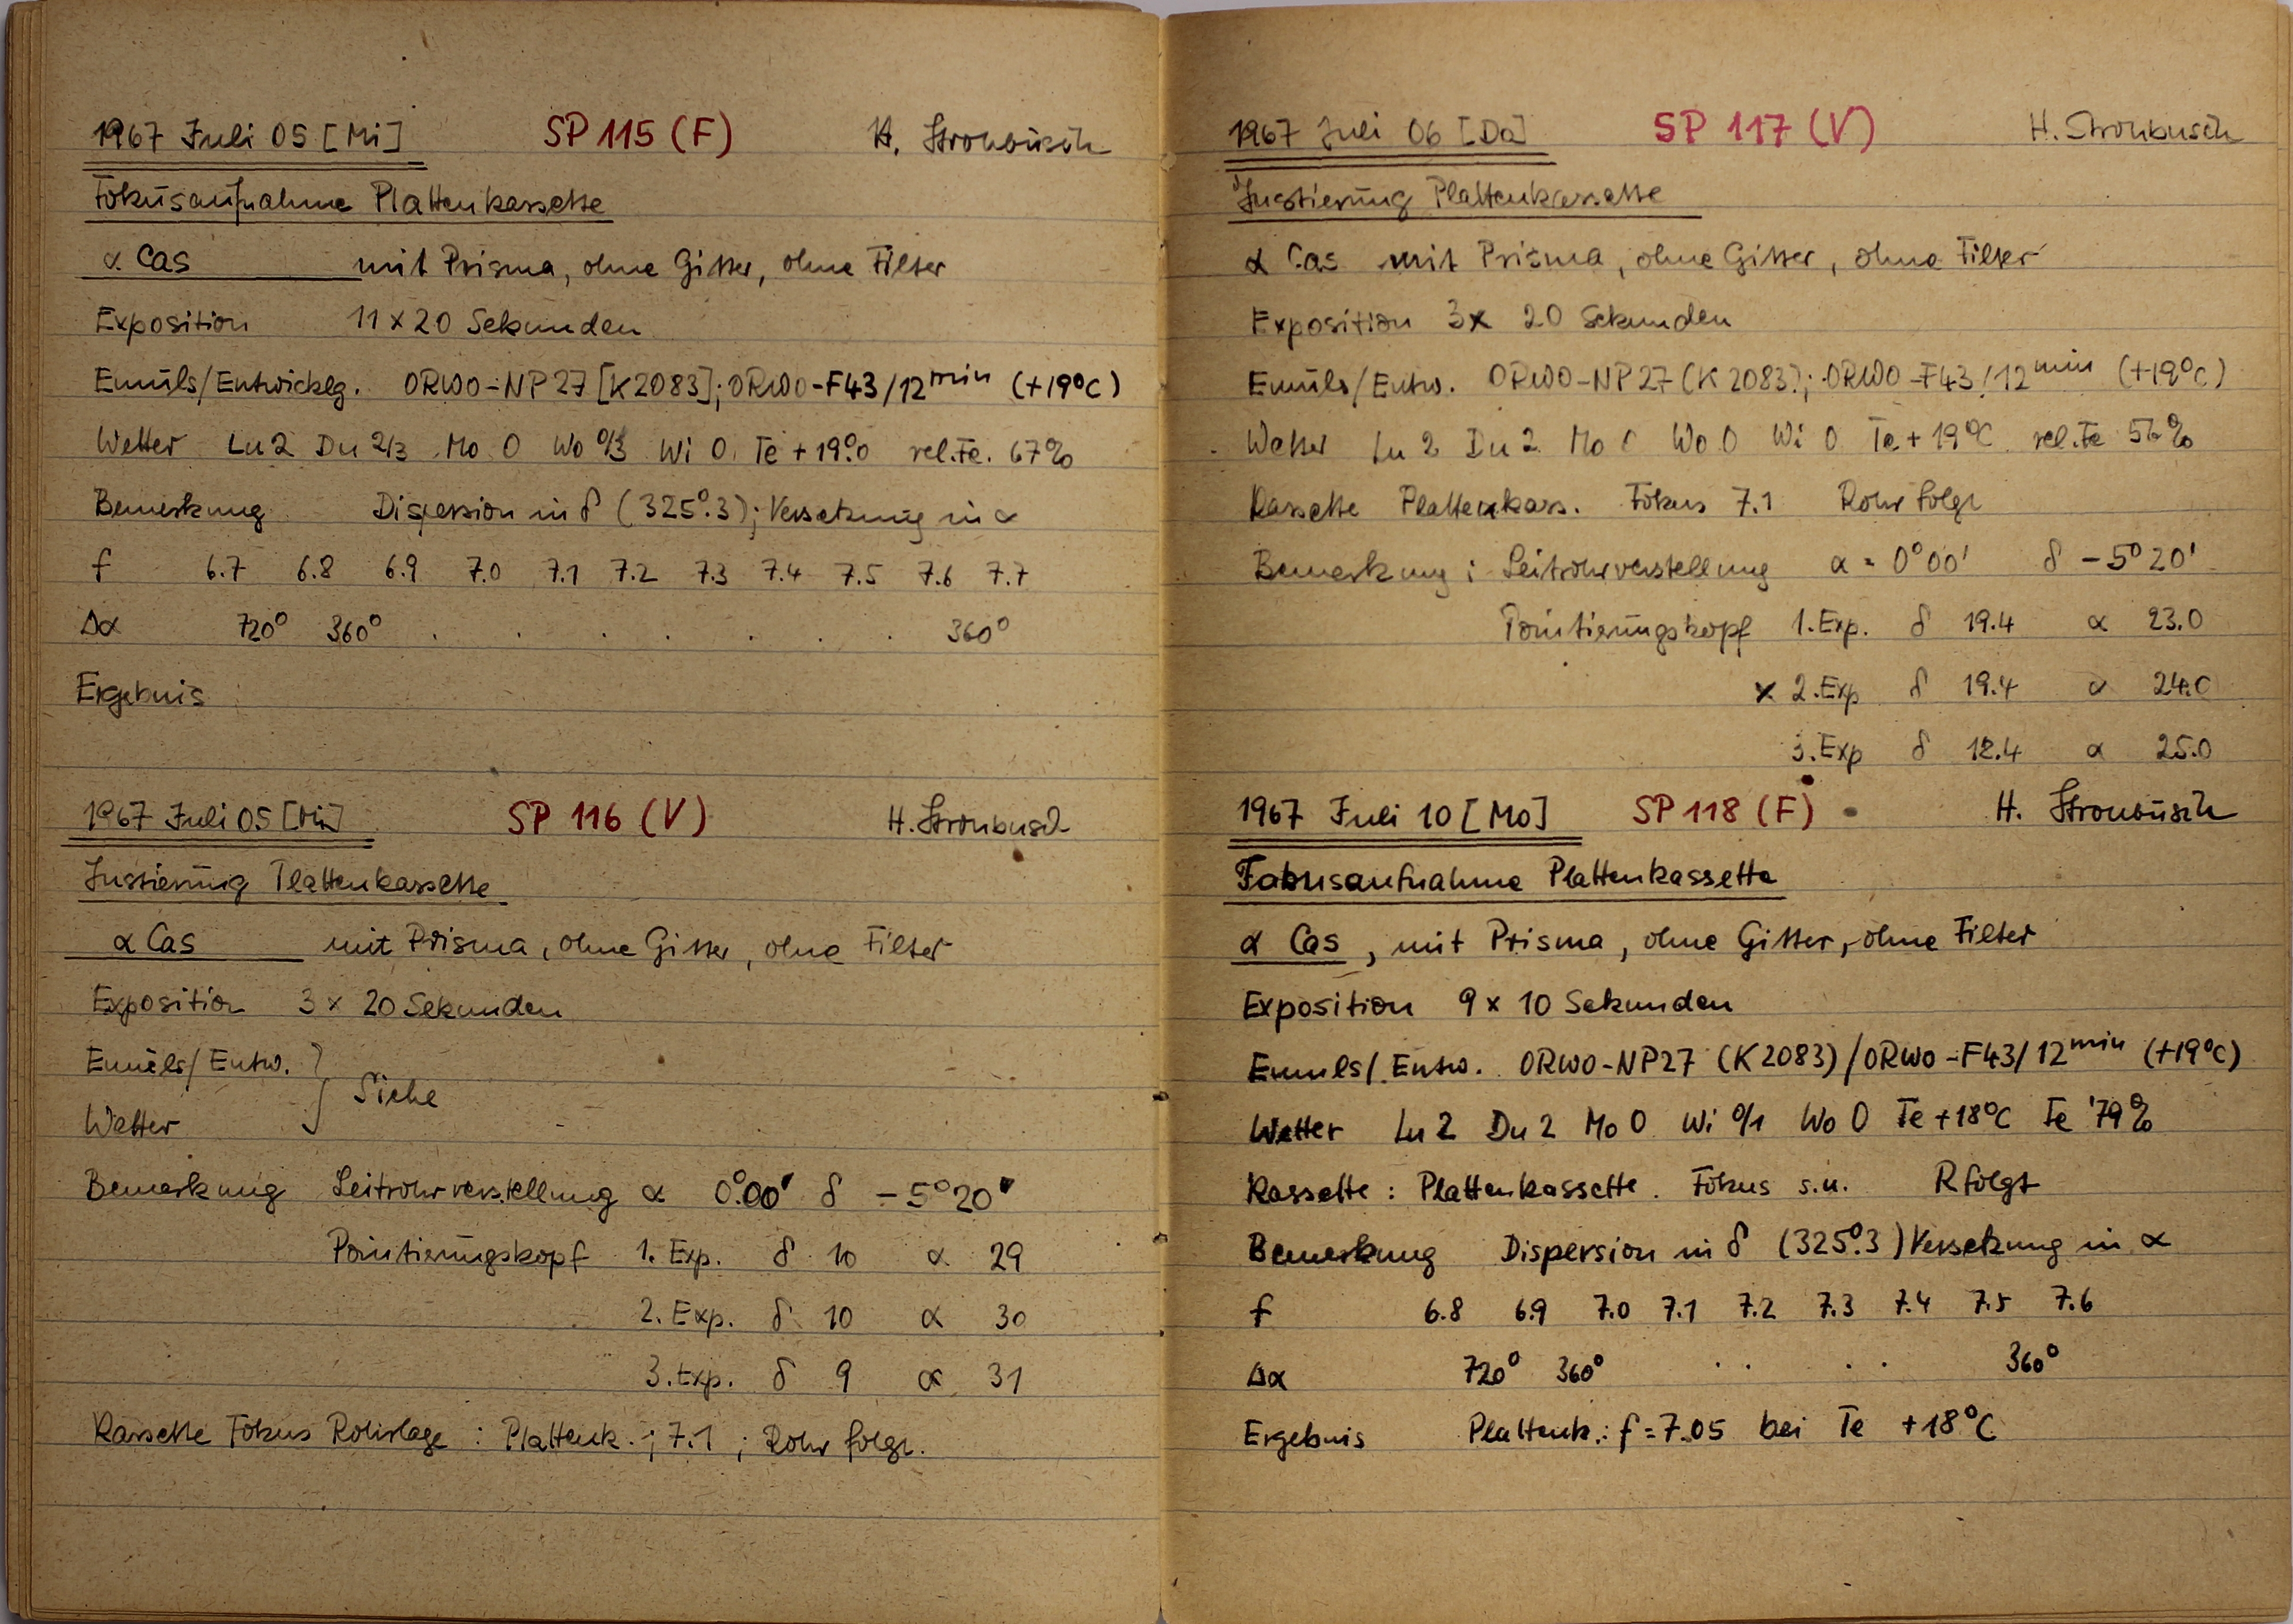 1967 Juli 05 [Mi] SP 115 (F) H. Strohbusch
Fokusaufnahme Plattenkassette
α Cas mit Prisma, ohne Gitter, ohne Filter
Exposition 11 x 20 Sekunden
Emuls/Entwicklg. ORWO-NP27 [K2083]; ORWO-F43/12min (+19°C)
Wetter Lu 2 Du 2/3 Mo 0 Wo 0/3 Wi 0 Te + 19°.0 rel.Fe. 67%
Bemerkung Dispersion in δ (325°.3); Versetzung in α
f 6.7 6.8 6.9 7.0 7.1 7.2 7.3 7.4 7.5 7.6 7.7
Δα 720° 360° . . . . . . . 360°
Ergebnis :
1967 Juli 05 [Mi] SP 116 (V) H. Strohbusch
Justierung Plattenkassette
α Cas mit Prisma, ohne Gitter, ohne Filter
Exposition 3 x 20 Sekunden
Emuls/Entw. } Siehe
Wetter
Bemerkung Leitrohrverstellung α 0°00' δ -5°20'
Pointierungskopf 1. Exp. δ 10 α 29
2. Exp. δ 10 α 30
3. Exp. δ 9 α 31
Kassette Fokus Rohrlage : Plattenk. ; 7.1 ; Rohr folgt.
1967 Juli 06 [Do] SP 117 (V) H. Strohbusch
Justierung Plattenkassette
α Cas mit Prisma, ohne Gitter, ohne Filter
Exposition 3x 20 Sekunden
Emuls/Entw. ORWO-NP27 (K2083); ORWO-F43/12min (+19°C)
Wetter Lu 2 Du 2 Mo 0 Wo 0 Wi 0 Te + 19°C rel.Fe
Kassette Plattenkass. Fokus 7.1 Rohr folgt
Bemerkung : Leitrohrverstellung α = 0°00' δ -5°20'
Pointierungskopf 1. Exp. δ 19.4 α 23.0
x 2. Exp δ 19.4 α 24.0
3. Exp δ α 25.0
1967 Juli 10 [Mo] SP 118 (F) H. Strohbusch
Fokusaufnahme Plattenkassette
α Cas, mit Prisma, ohne Gitter, ohne Filter
Exposition 9 x 10 Sekunden
Emuls/Entw. ORWO-NP27 (K2083)/ORWO-F43/12min (+19°C)
Wetter Lu 2 Du 2 Mo 0 Wi 0/1 Wo 0 Te +18°C Fe 79%
Kassette : Plattenkassette. Fokus s.u. R folgt
Bemerkung Dispersion in δ (325°.3) Versetzung in α
f 6.8 6.9 7.0 7.1 7.2 7.3 7.4 7.5 7.6
Δα 720° 360° . . . . 360°
Ergebnis Plattenk.: f = 7.05 bei Te +18°C